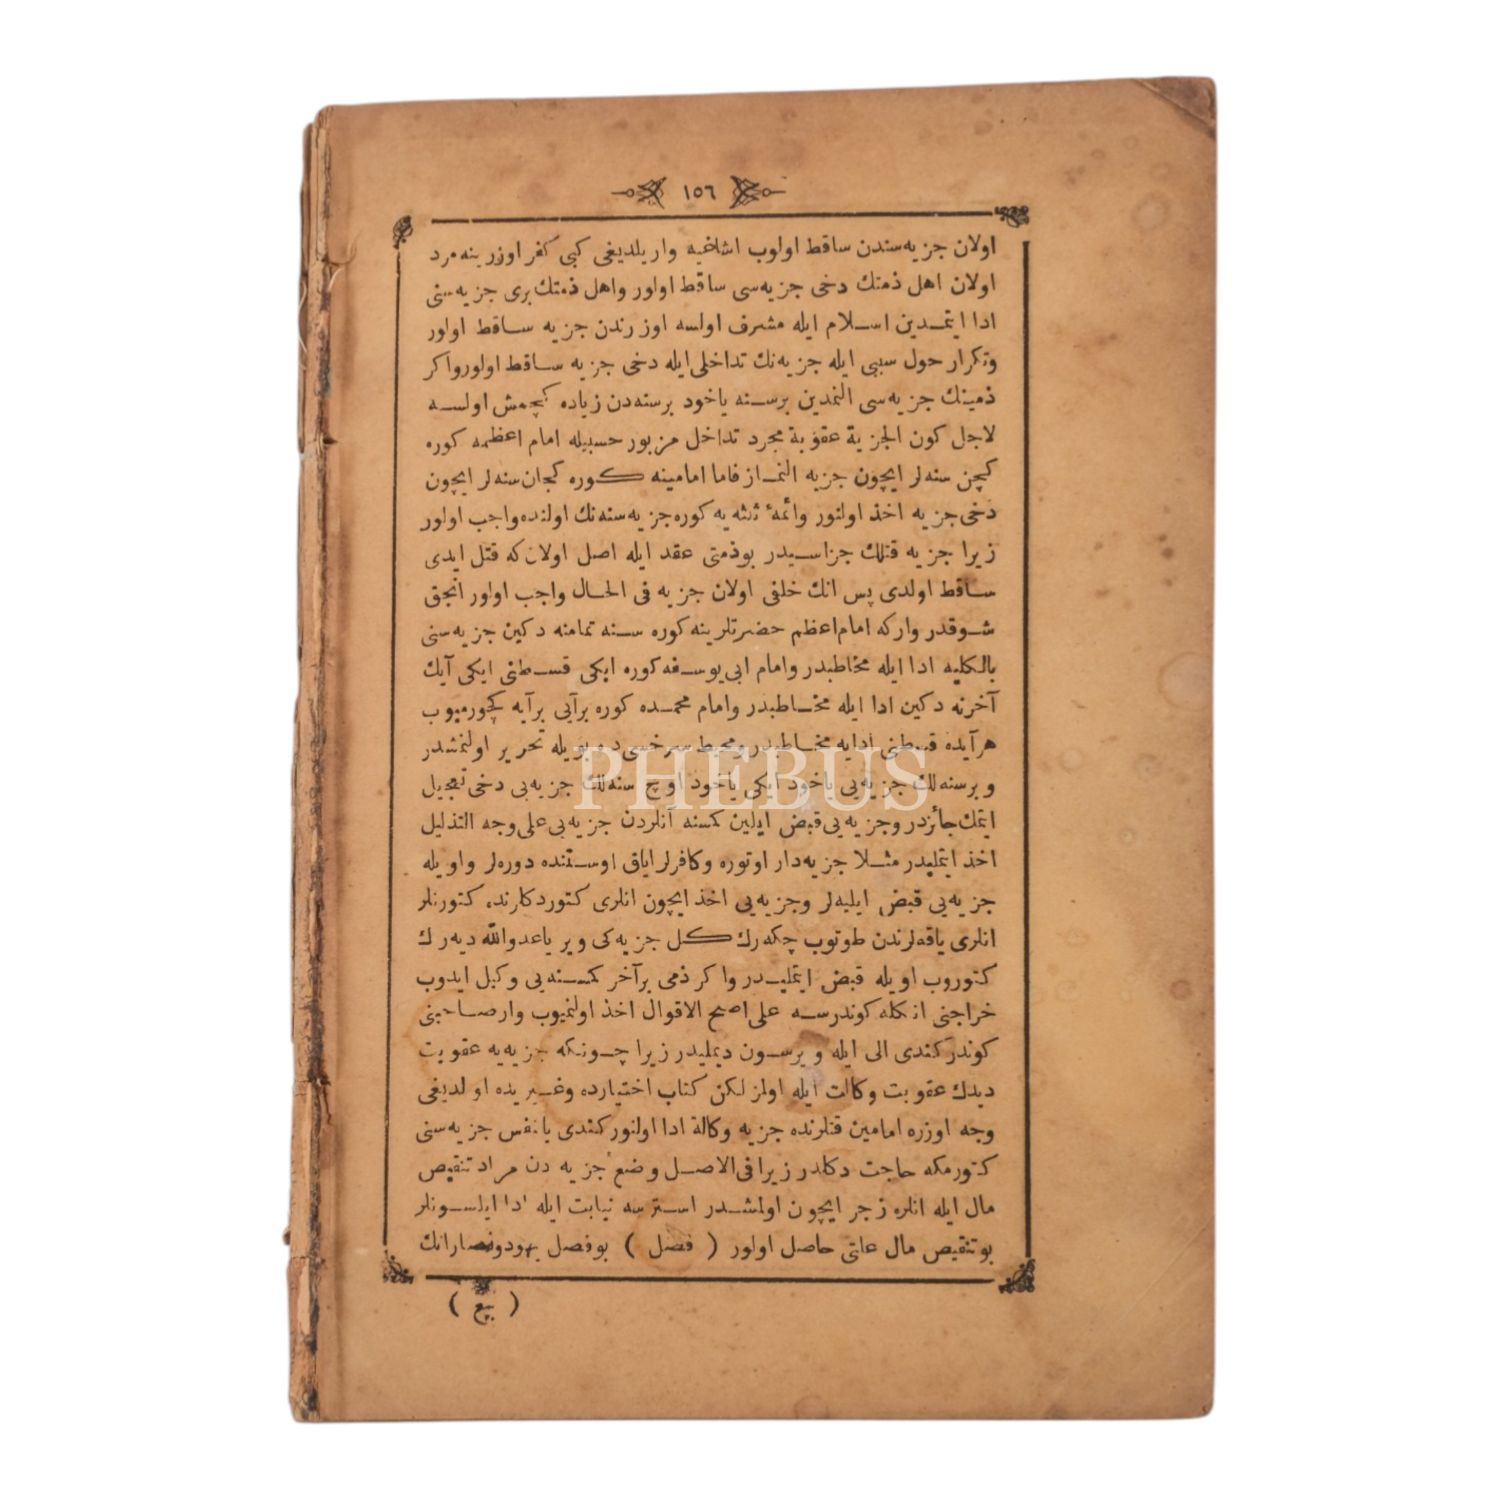 ١٥٦
اولان جزيه سندن ساقط اولوب اشاغيه واريلديغی کبی کفر اوزرينه مرد
اولان اهل ذمتك دخی جزيه سی ساقط اولور واهل ذمتك بری جزيه سنی
ادا ايتمدين اسلام ايله مشرف اولسه اوزرندن جزيه ساقط اولور
وتکرار حول سببی ايله جزيه نك تداخلی ايله دخی جزيه ساقط اولور واکر
ذمينك جزيه سی النمدين برسنه ياخود برسنه دن زياده کچمش اولسه
لاجل کون الجزية عقوبة مجرد تداخل مزبور حسبيله امام اعظمه کوره
کچن سنه لر ايچون جزيه النماز فاما امامينه کوره کچان سنه لر ايچون
دخی جزيه اخذ اولنور وائمۀ ثلثه يه کوره جزيه سنه نك اولنده واجب اولور
زيرا جزيه قتلك جزاسيدر بوذمتی عقد ايله اصل اولان که قتل ايدی
ساقط اولدی پس انك خلفی اولان جزيه فی الحال واجب اولور انجق
شوقدر وارکه امام اعظم حضرتلرينه کوره سنه تمامنه دکين جزيه سنی
بالکليه ادا ايله مخاطبدر وامام ابی يوسفه کوره ايکی قسطنی ايکی آيك
آخرنه دکين ادا ايله مخاطبدر وامام محمده کوره برآيی برآيه کچورميوب
هرآيده قسطنی ادايه مخاطبدر محيط سرخسی ده بويله تحرير اولنمشدر
PHEBUS
وبرسنه لك جزيه يی ياخود ايکی ياخود اوچ سنه لك جزيه يی دخی تعجيل
ايتمك جائزدر وجزيه يی قبض ايلين کمسنه آنلردن جزيه يی علی وجه التذليل
اخذ ايتمليدر مثلا جزيه دار اوتوره وکافرلر اياق اوستنده دوره لر واويله
جزيه يی قبض ايليه لر وجزيه يی اخذ ايچون انلری کتوردکلرنده کتورنلر
انلری ياقه لرندن طوتوب چکه رك کل جزيه کی وير ياعدوالله ديه رك
کتوروب اويله قبض ايتمليدر واکر ذمی برآخر کمسنه يی وکيل ايدوب
خراجنی انکله کوندرسه علی اصح الاقوال اخذ اولنميوب وار صاحبنی
کوندر کندی الی ايله ويرسون ديمليدر زيرا چونکه جزيه يه عقوبت
ديدك عقوبت وکالت ايله اولمز لکن کتاب اختيارده وغيريده اولديغی
وجه اوزره امامين قتلرنده جزيه وکالة ادا اولنور کندی بالنفس جزيه سنی
کتورمکه حاجت دکلدر زيرا فی الاصل وضع جزيه دن مراد تنقيص
مال ايله انلره زجر ايچون اولمشدر استرسه نيابت ايله ادا ايلسونلر
بوتنقيص مال علتی حاصل اولور ( فصل ) بوفصل يهود ونصارانك
( بيع )